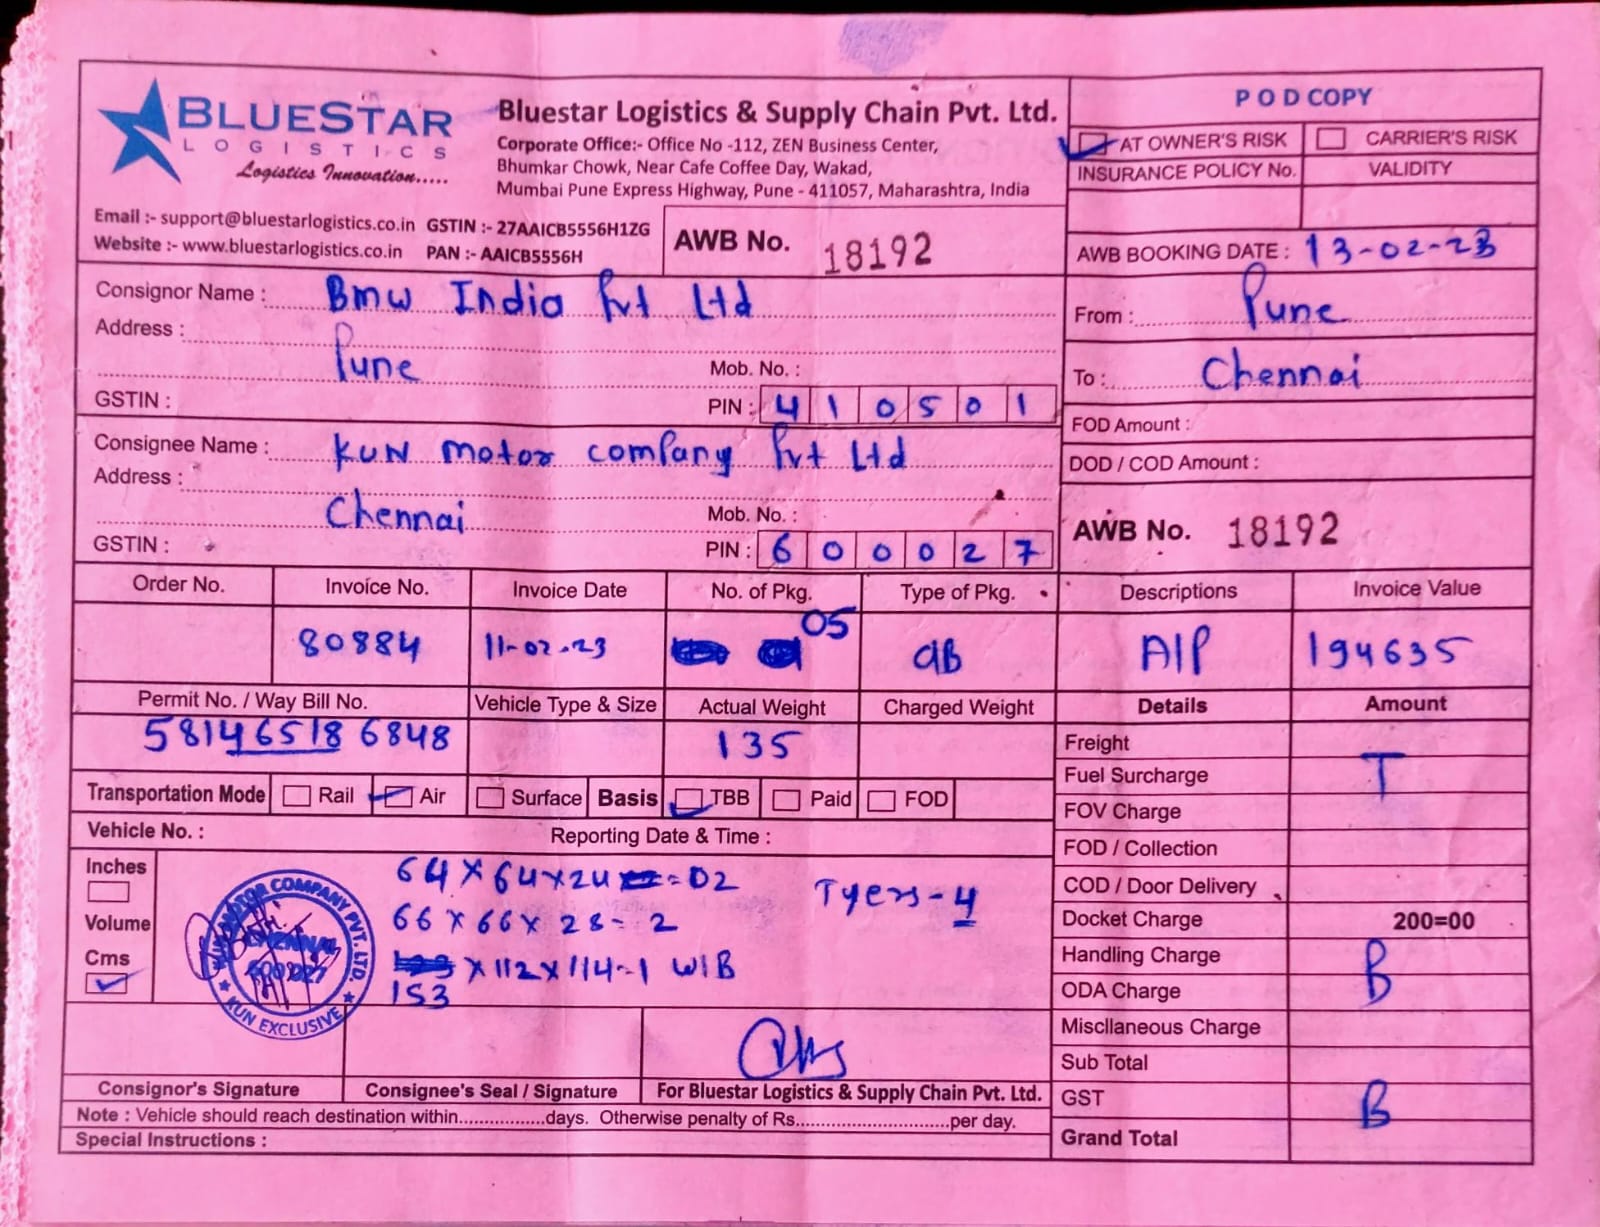 BLUESTAR
LOGISTICS
Logistics Innovation.....
Bluestar Logistics & Supply Chain Pvt. Ltd.
Corporate Office:- Office No -112, ZEN Business Center,
Bhumkar Chowk, Near Cafe Coffee Day, Wakad,
Mumbai Pune Express Highway, Pune - 411057, Maharashtra, India
Email :- support@bluestarlogistics.co.in GSTIN :- 27AAICB5556H1ZG
Website :- www.bluestarlogistics.co.in PAN :- AAICB5556H
AWB No. 18192
POD COPY
AT OWNER'S RISK CARRIER'S RISK
INSURANCE POLICY No. VALIDITY
AWB BOOKING DATE : 13-02-23
Consignor Name : Bmw India Pvt Ltd
Address :
Pune Mob. No. :
GSTIN : PIN : 410501
From : Pune
To : Chennai
FOD Amount :
DOD / COD Amount :
Consignee Name : KUN Motor company Pvt Ltd
Address :
Chennai Mob. No. :
GSTIN : PIN : 600027
AWB No. 18192
Order No. Invoice No. Invoice Date No. of Pkg. Type of Pkg. Descriptions Invoice Value
80884 11-02-23 05 CIB A/P 194635
Permit No. / Way Bill No. Vehicle Type & Size Actual Weight Charged Weight Details Amount
581465186848 135
Freight
Fuel Surcharge T
FOV Charge
FOD / Collection
COD / Door Delivery
Docket Charge 200=00
Handling Charge B
ODA Charge
Miscllaneous Charge
Sub Total
GST B
Grand Total
Transportation Mode Rail Air Surface Basis TBB Paid FOD
Vehicle No. : Reporting Date & Time :
Inches
Volume
Cms
64 x 64 x 24 = 02
66 x 66 x 28 - 2
153 x 112 x 114 - 1 W/B
Tyers - 4
KUN MOTOR COMPANY PVT. LTD.
CHENNAI
600 027
KUN EXCLUSIVE
Consignor's Signature Consignee's Seal / Signature For Bluestar Logistics & Supply Chain Pvt. Ltd.
Note : Vehicle should reach destination within.................days. Otherwise penalty of Rs..............................per day.
Special Instructions :